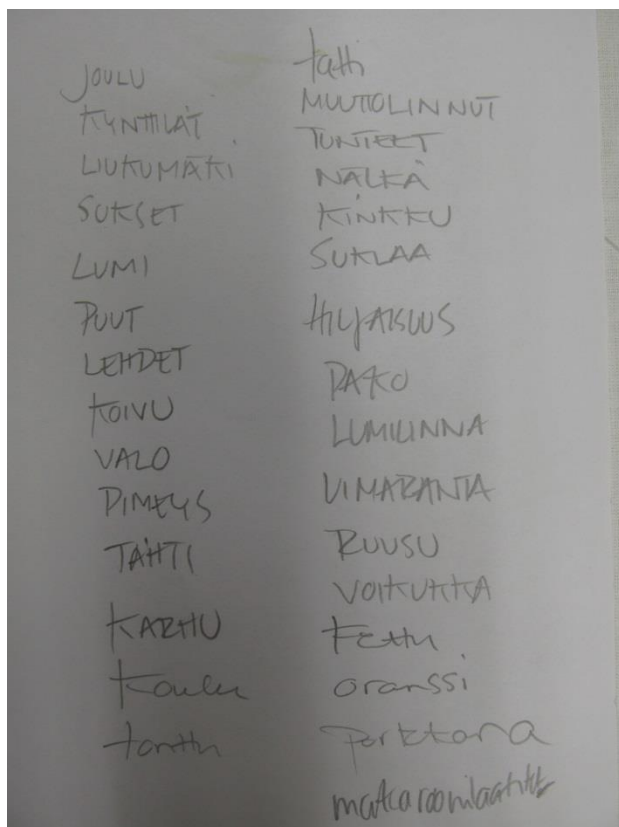 JOULU
KYNTTILÄT
LIUKUMÄKI
SUKSET
LUMI
PUUT
LEHDET
KOIVU
VALO
PIMEYS
TÄHTI
KARHU
Koulu
tonttu
tatti
MUUTTOLINNUT
TUNTEET
NÄLKÄ
KINKKU
SUKLAA
HILJAISUUS
PAKO
LUMILINNA
UIMARANTA
RUUSU
VOIKUKKA
KETTU
oranssi
porkkana